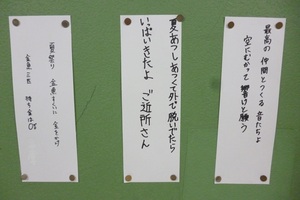 最高の 仲間とつくる 音たちよ
空にむかって 響けと願う
夏あつしあつくて外で脱いでたら
いっぱいきたよ ご近所さん
夏祭り 金魚すくいに